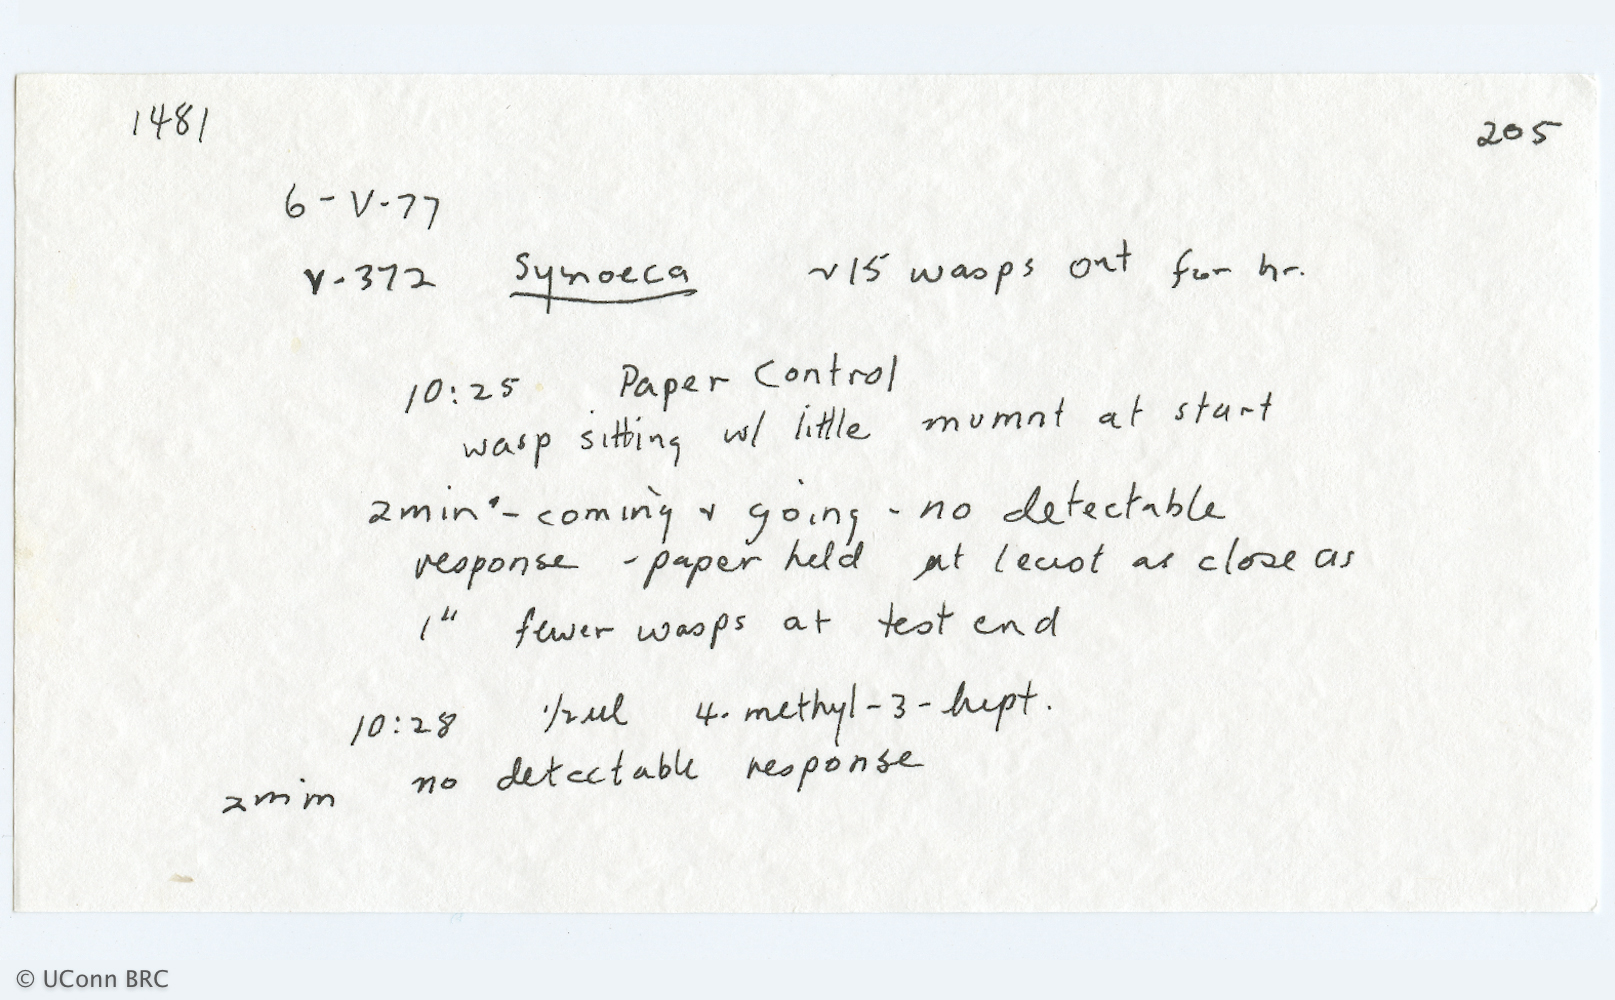 1481
205
6-V-77
V-372 Synoeca ~15 wasps out for hr.
10:25 Paper Control
wasp sitting w/ little mvmnt at start
2min - coming & going - no detectable
response - paper held at least as close as
1" fewer wasps at test end
10:28 1/2 ul 4-methyl-3-hept.
2min no detectable response
© UConn BRC